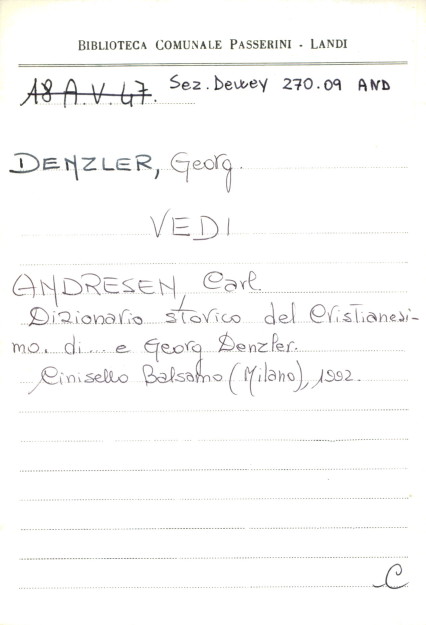 BIBLIOTECA COMUNALE PASSERINI - LANDI
18 A.V. 47. Sez. Dewey 270.09 AND
DENZLER, Georg.
VEDI
ANDRESEN, Carl.
Dizionario storico del Cristianesi-
mo. di... e Georg Denzler.
Cinisello Balsamo (Milano), 1992.
C